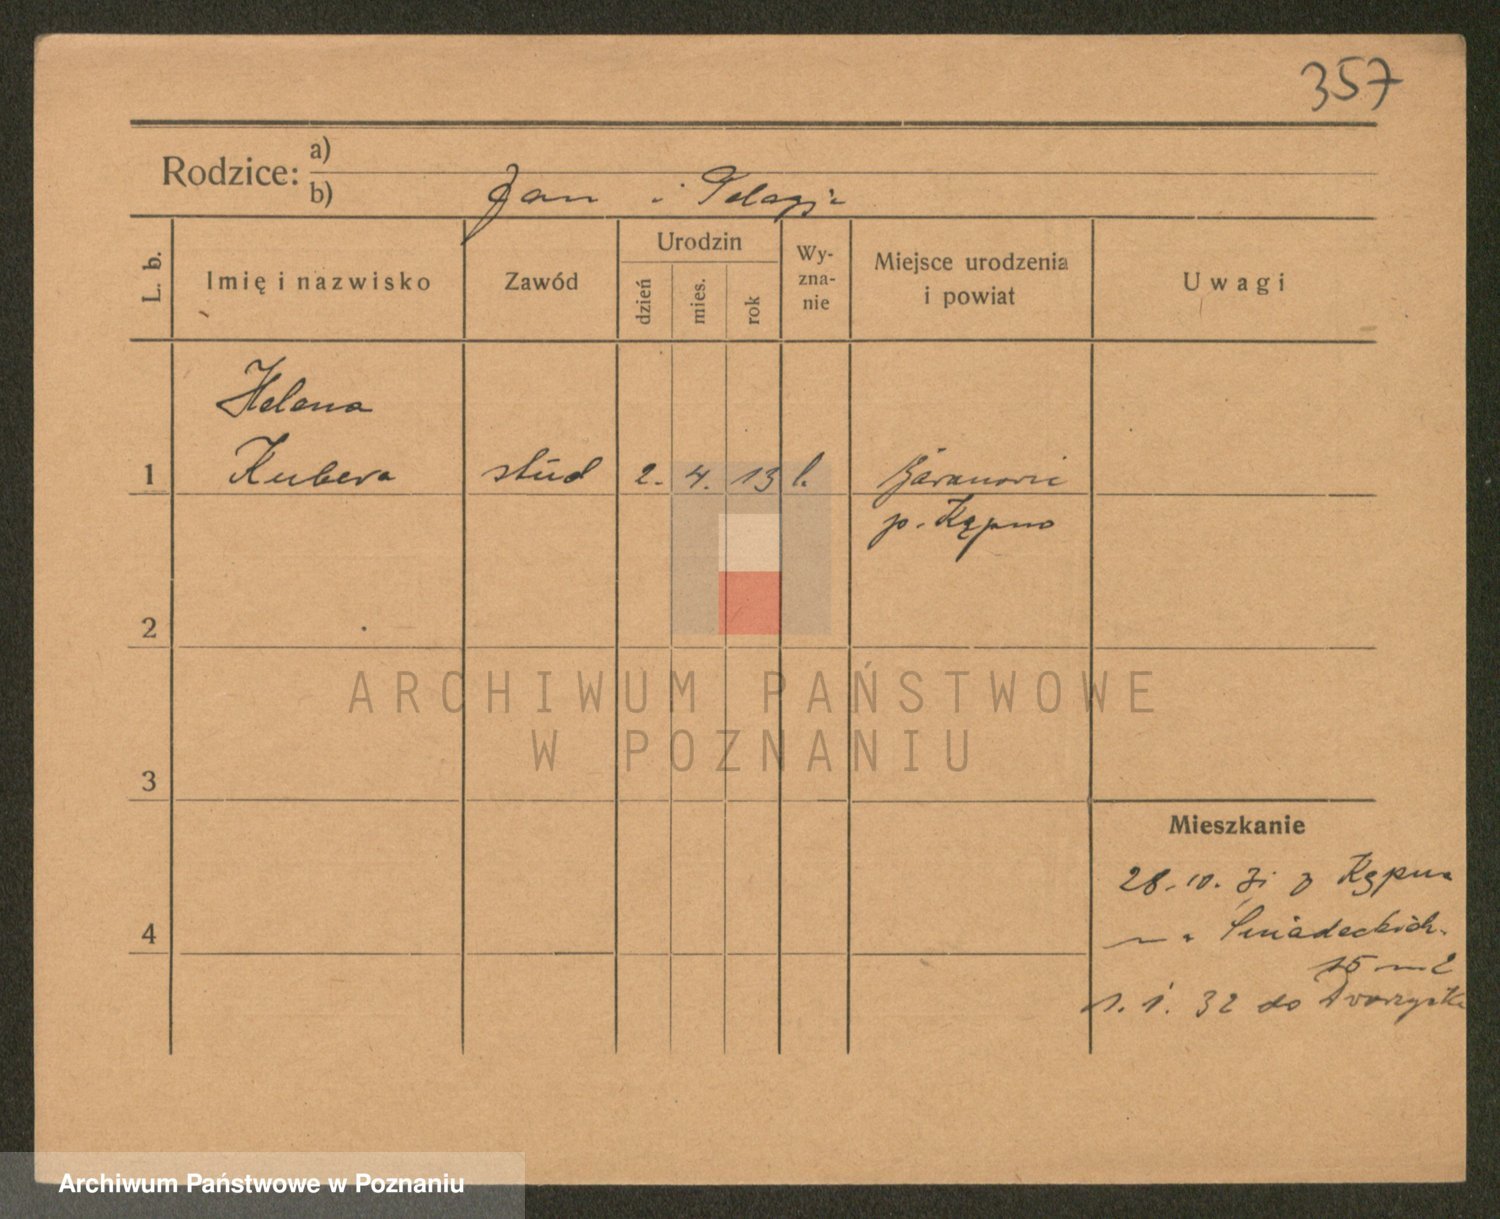 357
Rodzice: a)
b) Jan i Pelagja
L. b. Imię i nazwisko Zawód Urodzin dzień mies. rok Wy-zna-nie Miejsce urodzenia i powiat Uwagi
Helena
1 Kubera stud 2. 4. 13 Baranowie
p. Kępno
2
ARCHIWUM PAŃSTWOWE
W POZNANIU
3
Mieszkanie
28. 10. 31 z Kępna
4 Śniadeckich
15 m 2
1. 1. 32 do
Archiwum Państwowe w Poznaniu